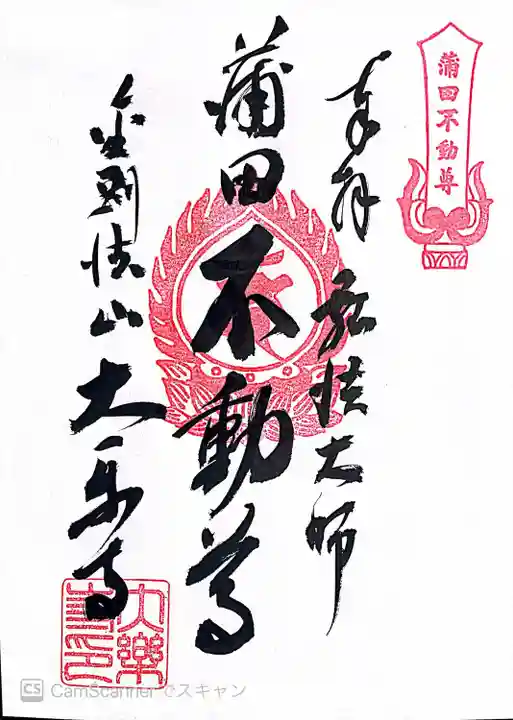 蒲田不動尊
奉拝 弘法大師
蒲田不動尊
金剛法山 大楽寺
大樂寺印
CS CamScanner でスキャン